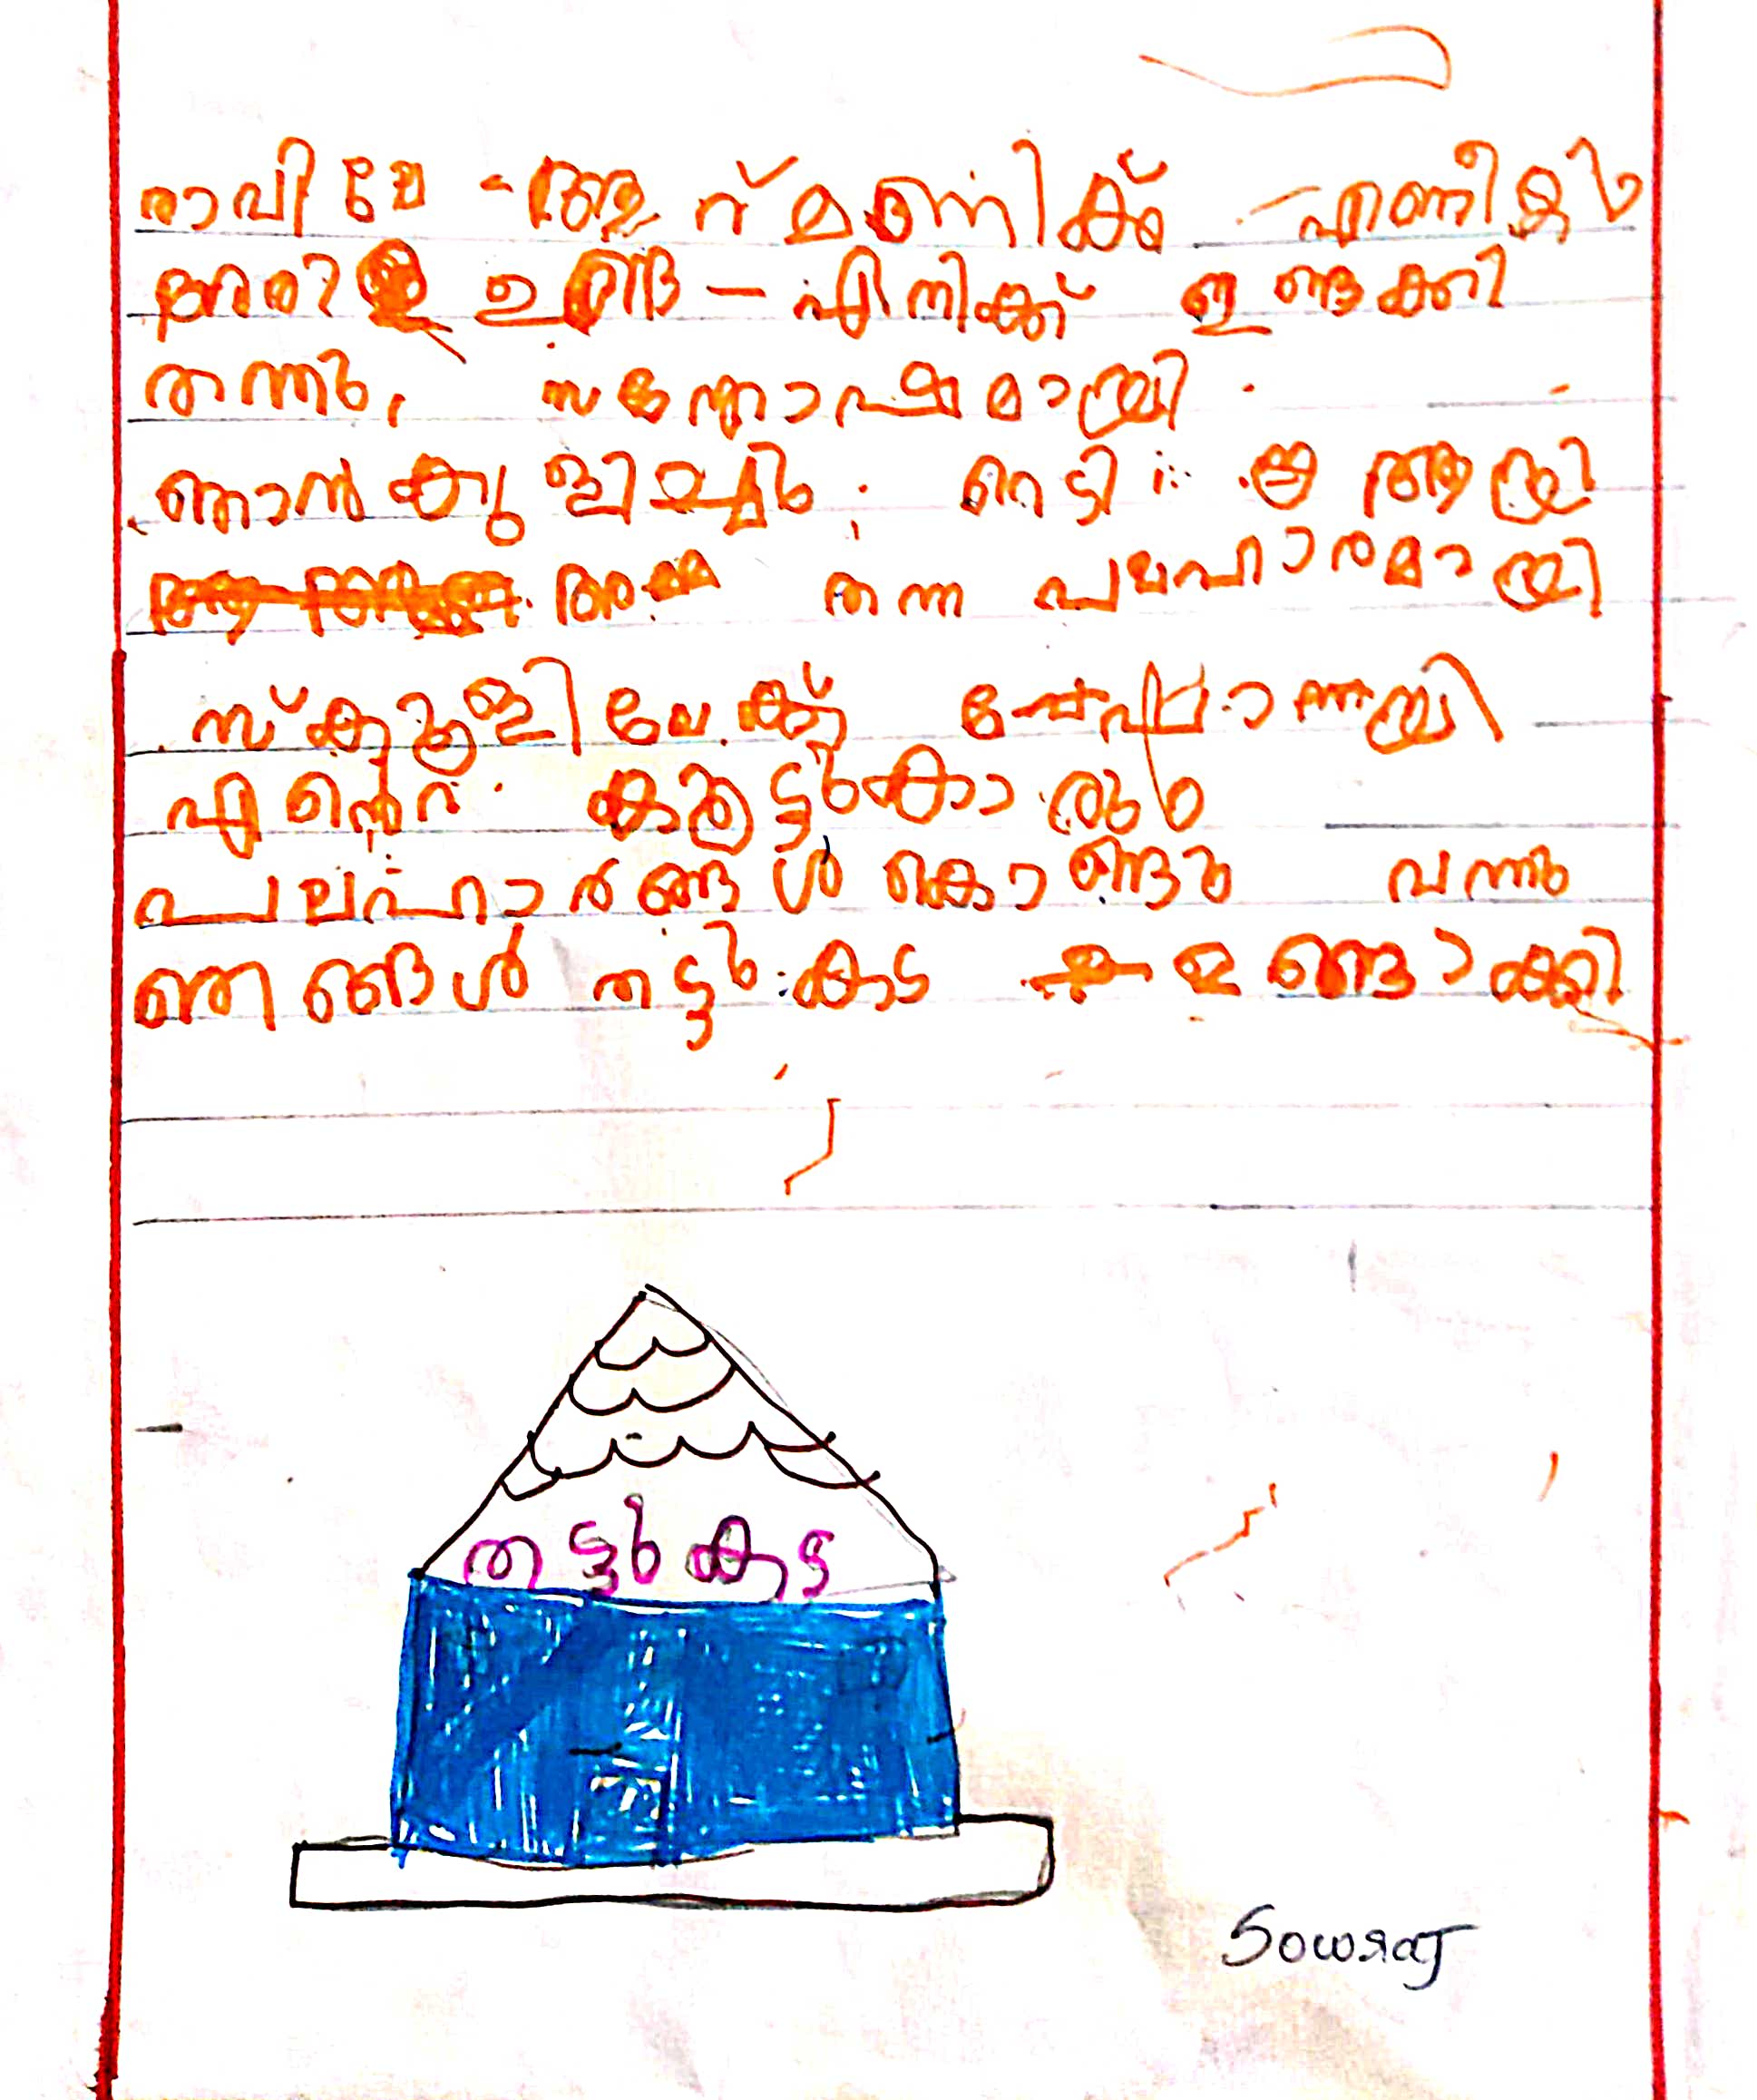 രാവിലേ ആറ് മണിക്ക് എണീറ്റു
അരി ഉണ്ട എനിക്ക് ഇണ്ടക്കി
തന്നു, സന്തോഷമായി
ഞാൻ കുളിച്ചു. റെടി ആയി
അമ്മ തന്ന പലഹാരമായി
സ്കൂളിലേക്ക് പോയി
എന്റെ കൂട്ടുകാരും
പലഹാരങ്ങൾ കൊണ്ടു വന്നു
ഞങ്ങൾ തട്ടുകട ഉണ്ടാക്കി
തട്ടുകട
Sowraj